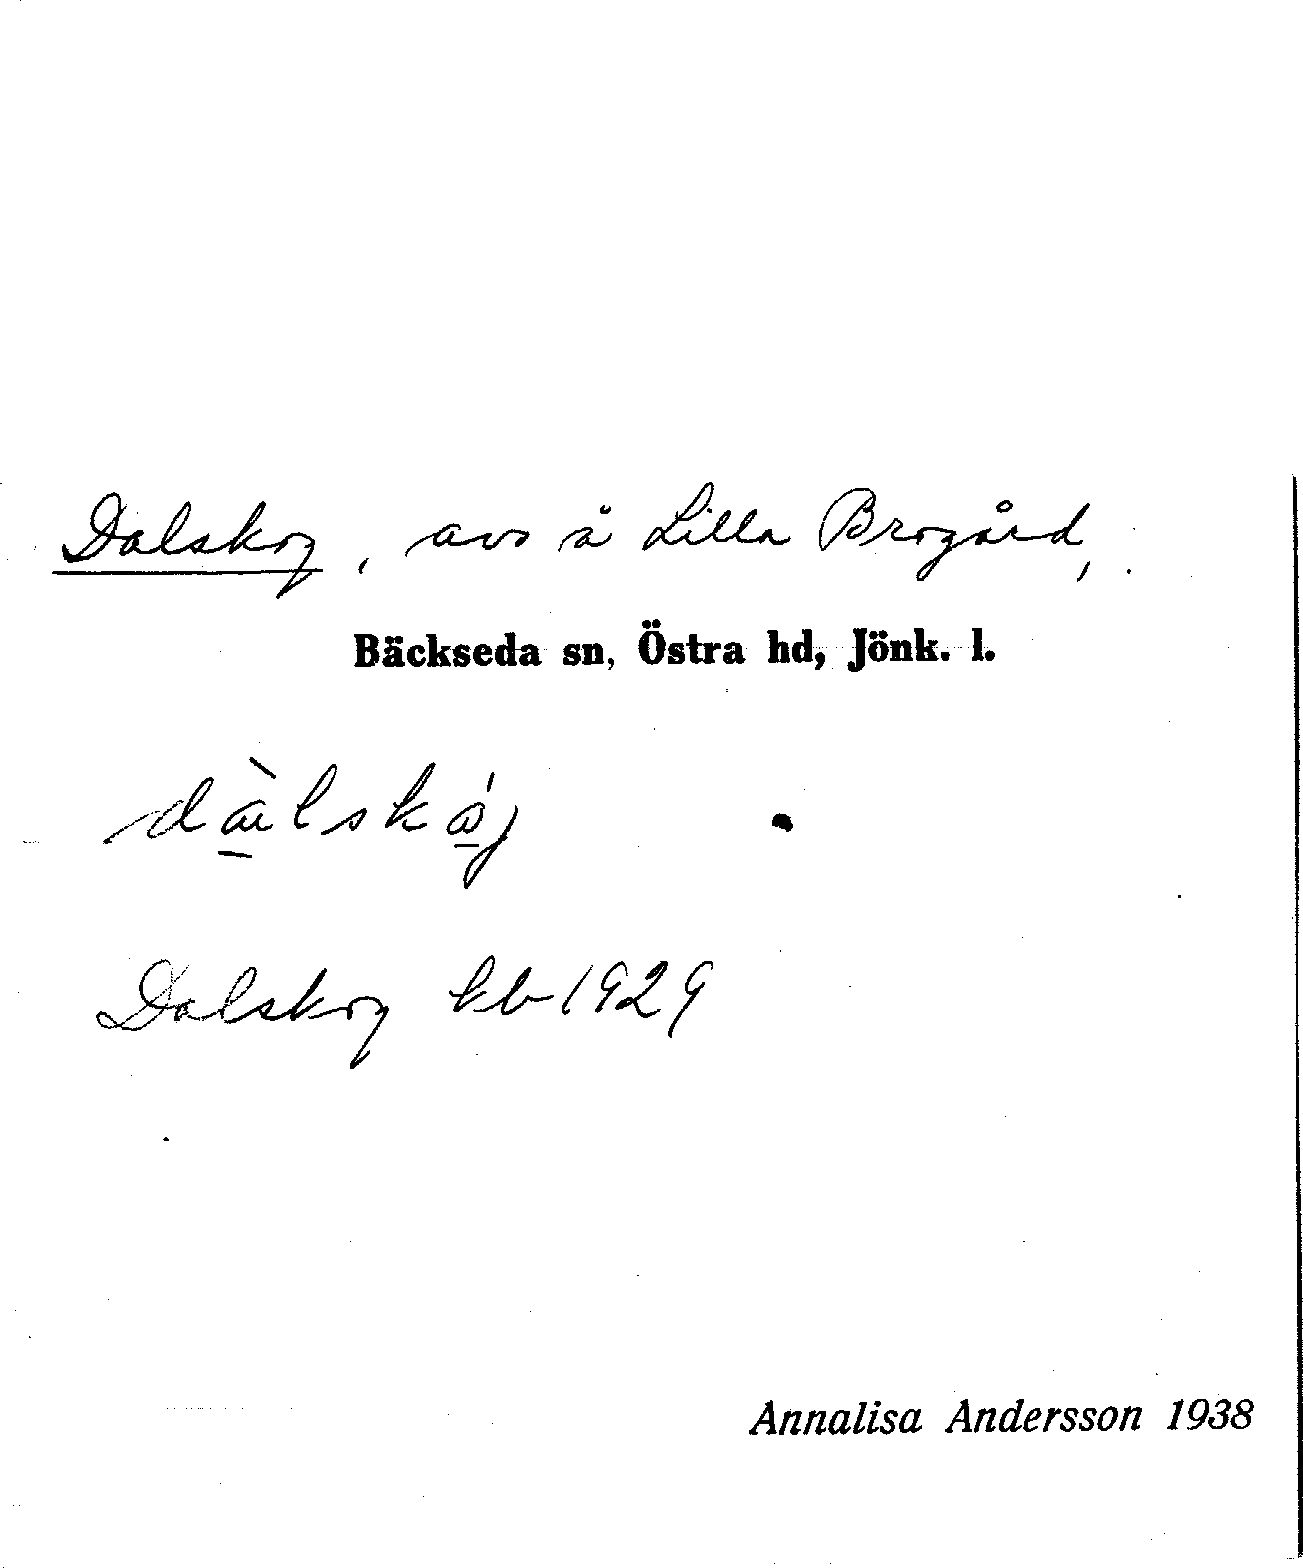 Dalskog, avs å Lilla Brogård,
Bäckseda sn, Östra hd, Jönk. l.
Dalskog kb 1929
Annalisa Andersson 1938